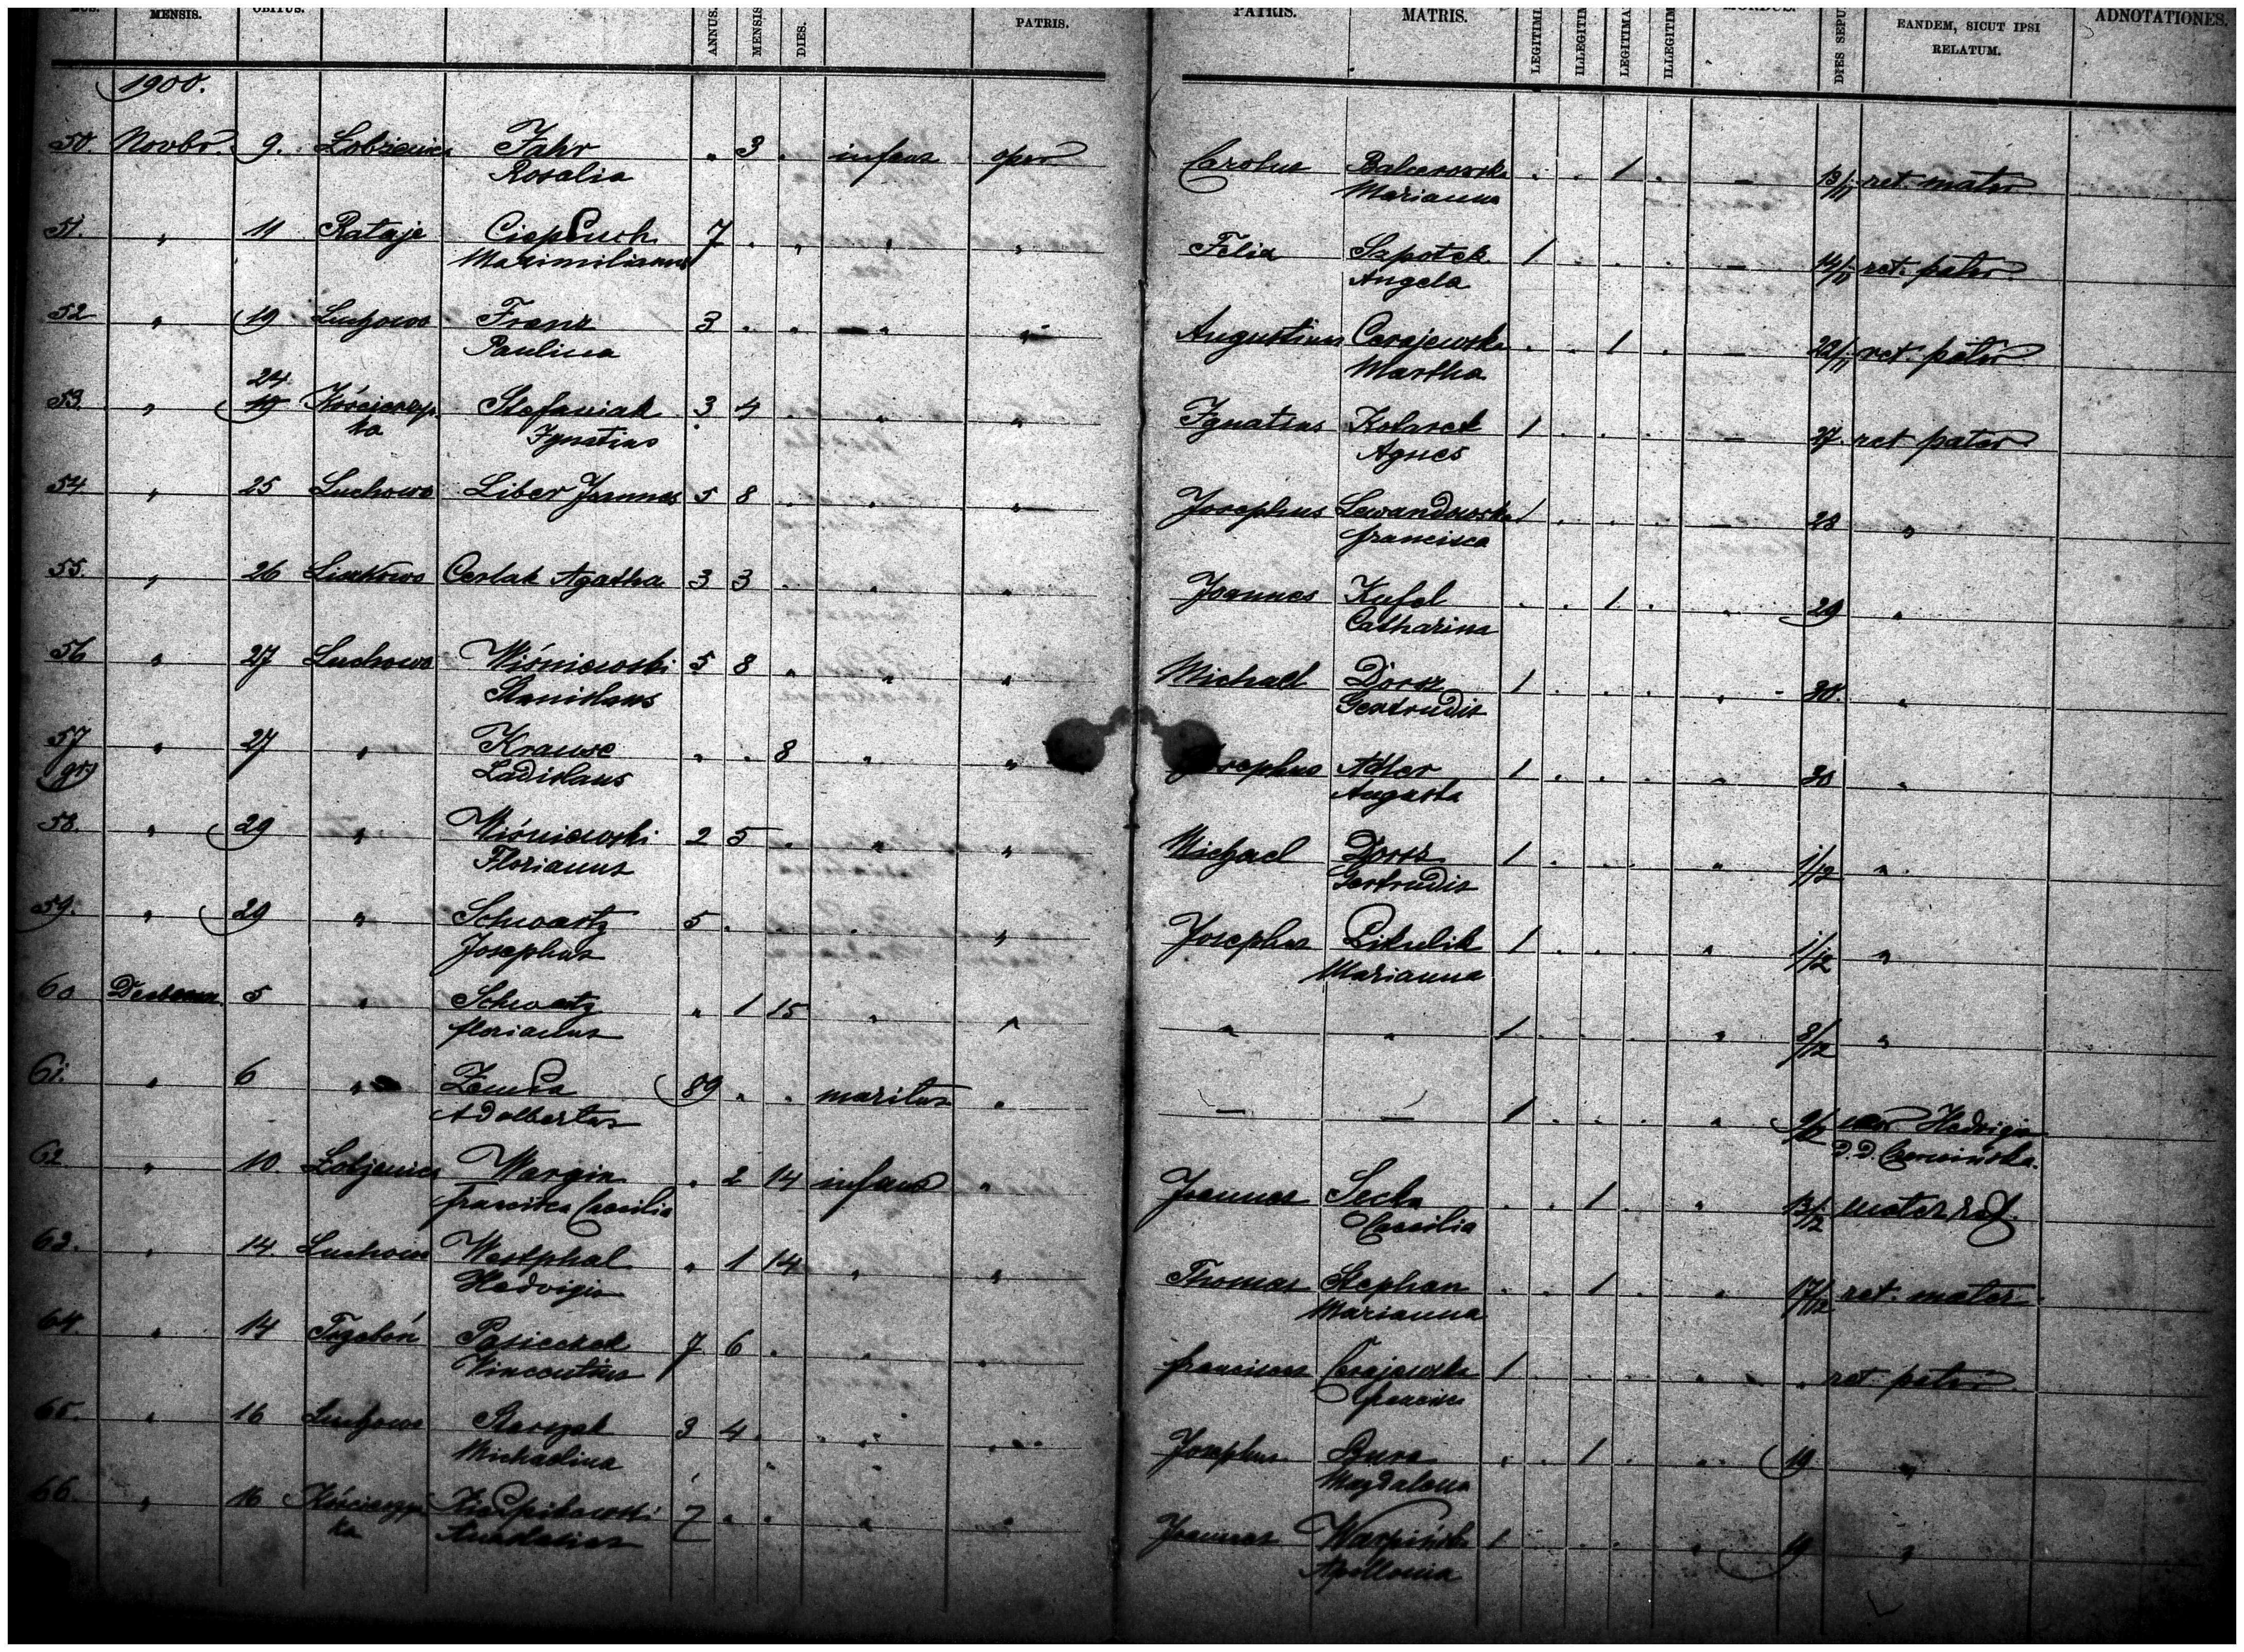 MENSIS. OBITUS. ANNUS. MENSIS DIES. PATRIS. PATRIS. MATRIS. LEGITIMI ILLEGITIM LEGITIMA ILLEGITIM DIES SEPU EANDEM, SICUT IPSI RELATUM. ADNOTATIONES.
1900.
50. Novbr. 9. Lobżenica Jahr . 3 . infans oper Carolus Balcerowska . . 1 . — 13/11 ret. mater
Rosalia Marianna
51. " 11 Rataje Ciepłuch 7 . " " " Felix Szpotek 1 . . . — 14/11 ret. pater
Maximilianus Angela
52 " 19 Luchowo Franz 3 . . " " Augustinus Czajewska . . 1 . — 22/11 ret. pater
Paulina Martha
24
53. " 19 Kościerzyn 3 4 . " " Ignatius 1 . . . — 27. ret pater
ka Stefaniak Ignatius Agnes
54 " 25 Luchowo Liber Joannes 5 8 . " " Josephus Lewandowska 1 . . . — 28 "
Francisca
55. " 26 Liszkowo Cerlak Agatha 3 3 . " " Joannes Kufel . . 1 . " 29 "
Catharina
56 " 27 Luchowo Wiśniewski 5 8 " " " Michael Dorsz 1 . . . " 30. "
Stanislaus Gertrudis
57 " 27 " Krause " . 8 " " Josephus Adler 1 . . . " 30 "
Ladislaus Augusta
58. " 29 " Wiśniewski 2 5 . " " Michael Dorsz 1 . . . " 1/12 "
Florianus Gertrudis
59. " 29 " Schwartz 5 . " Josephus Pikulik 1 . . . " 1/12 "
Josephus Marianna
60 5 " Schwartz " 1 15 " " " " 1 . . . " 8/12 "
Florianus
61. " 6 " Zemła 89 . . maritus " — — 1 . . . " 9/12 uxor Hedvigis
Adalbertus D. D. Czerwińska.
62 " 10. Łobżenica Wargin " 2 14 infans " Joannes Secka . . 1 . " 13/12 mater ret.
Francisca Caecilia Caecilia
63. " 14. Luchowo Westphal " 1 14 " " Thomas Stephan . . 1 . " 17/12 ret. mater
Hedvigis Marianna
64. " 14 Trzeboń Pasieczek 7 6 . " " Franciscus Czajewska 1 . . . " . ret. pater
Vincentius
65. " 16 Luchowo 3 4 . " " Josephus . . 1 . " 19 "
Michaelina Magdalena
66. " 16 Kościerzyn 7 . . " " Joannes Warpińska 1 . . . " 19 "
ka Apollonia